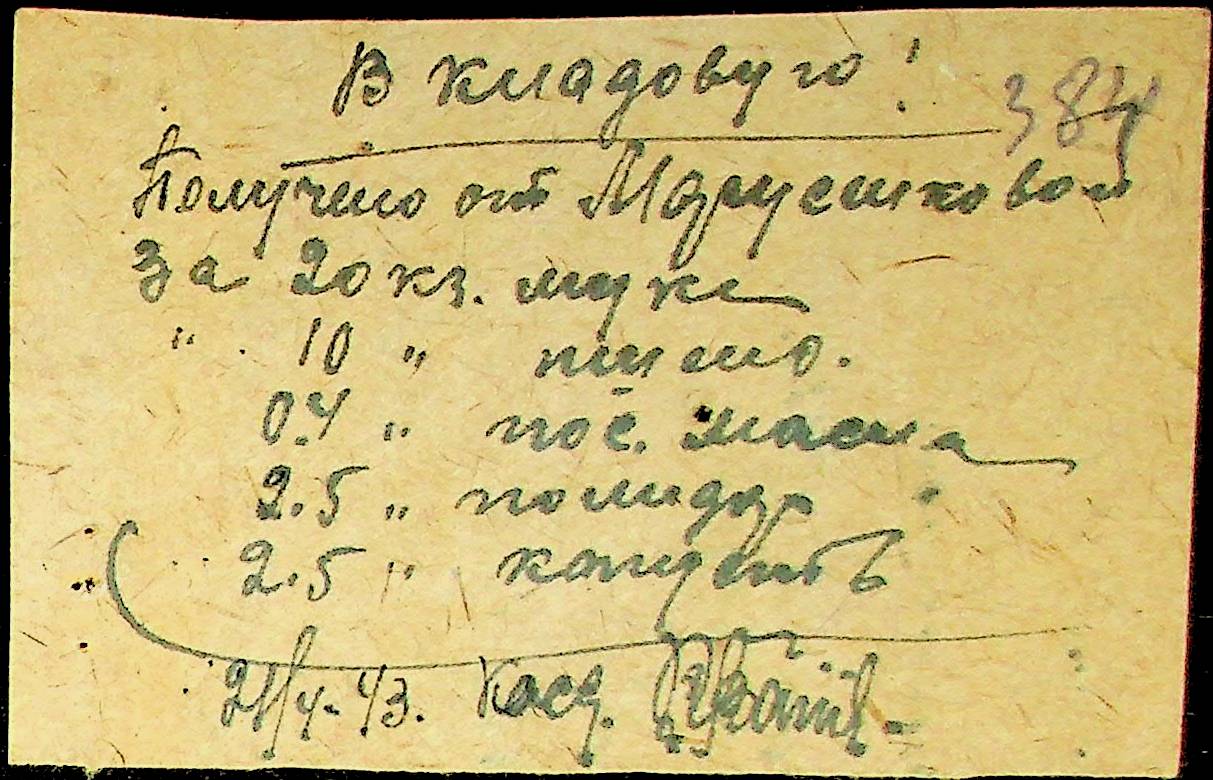 В кладовую!
384
Получено от Марусенковой
За 20 кг. муки
" 10 " пшено.
0.4 " пос. масла
2.5 " помидор
2.5 " конфет
21/4-43. Касс.